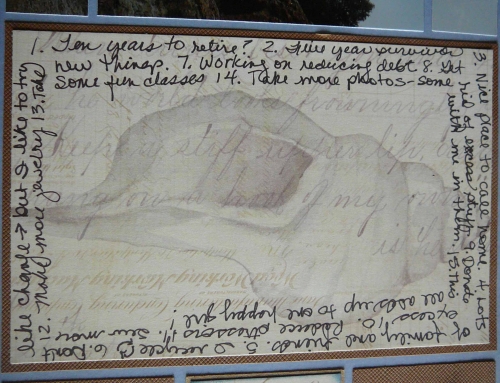 1. Ten years to retire? 2. Five year survivor
3. Nice place to call home. 4. Lots
of family and friends. 5. I recycle 6. Don't
like change → but I like to try
new things. 7. Working on reducing debt 8. Get
rid of excess stuff 9. Donate
excess, 10. Reduce stressors 11. Sew more
12. Make more jewelry 13. Take
some fun classes 14. Take more photos-some
with me in them. 15. This
all adds up to one happy girl!